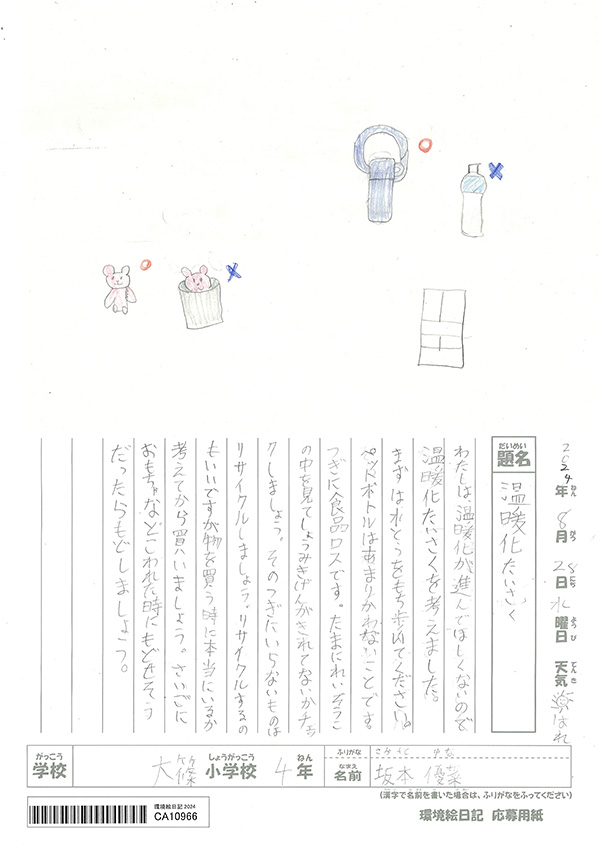 2024年ねん 8月がつ 28日にち 水曜日ようび 天気てんき はれ
だいめい
題名
温暖化たいさく
わたしは、温暖化が進んでほしくないので
温暖化たいさくを考えました。
まずは水とうをもち歩いてください。
ペットボトルはあまりかわないことです。
つぎに食品ロスです。たまにれいぞうこ
の中を見てしょうみきげんがきれてないかチェッ
クしましょう。そのつぎにいらないものは
リサイクルしましょう。リサイクルするの
もいいですが物を買う時に本当にいるか
考えてから買いましょう。さいごに
おもちゃなどこわれた時にもどせそう
だったらもどしましょう。
がっこう
学校
大篠 小学校しょうがっこう 4年ねん
ふりがな さかもと ゆな
なまえ
名前 坂本 優菜
(漢字で名前を書いた場合は、ふりがなをふってください)
環境絵日記 応募用紙
環境絵日記 2024
CA10966